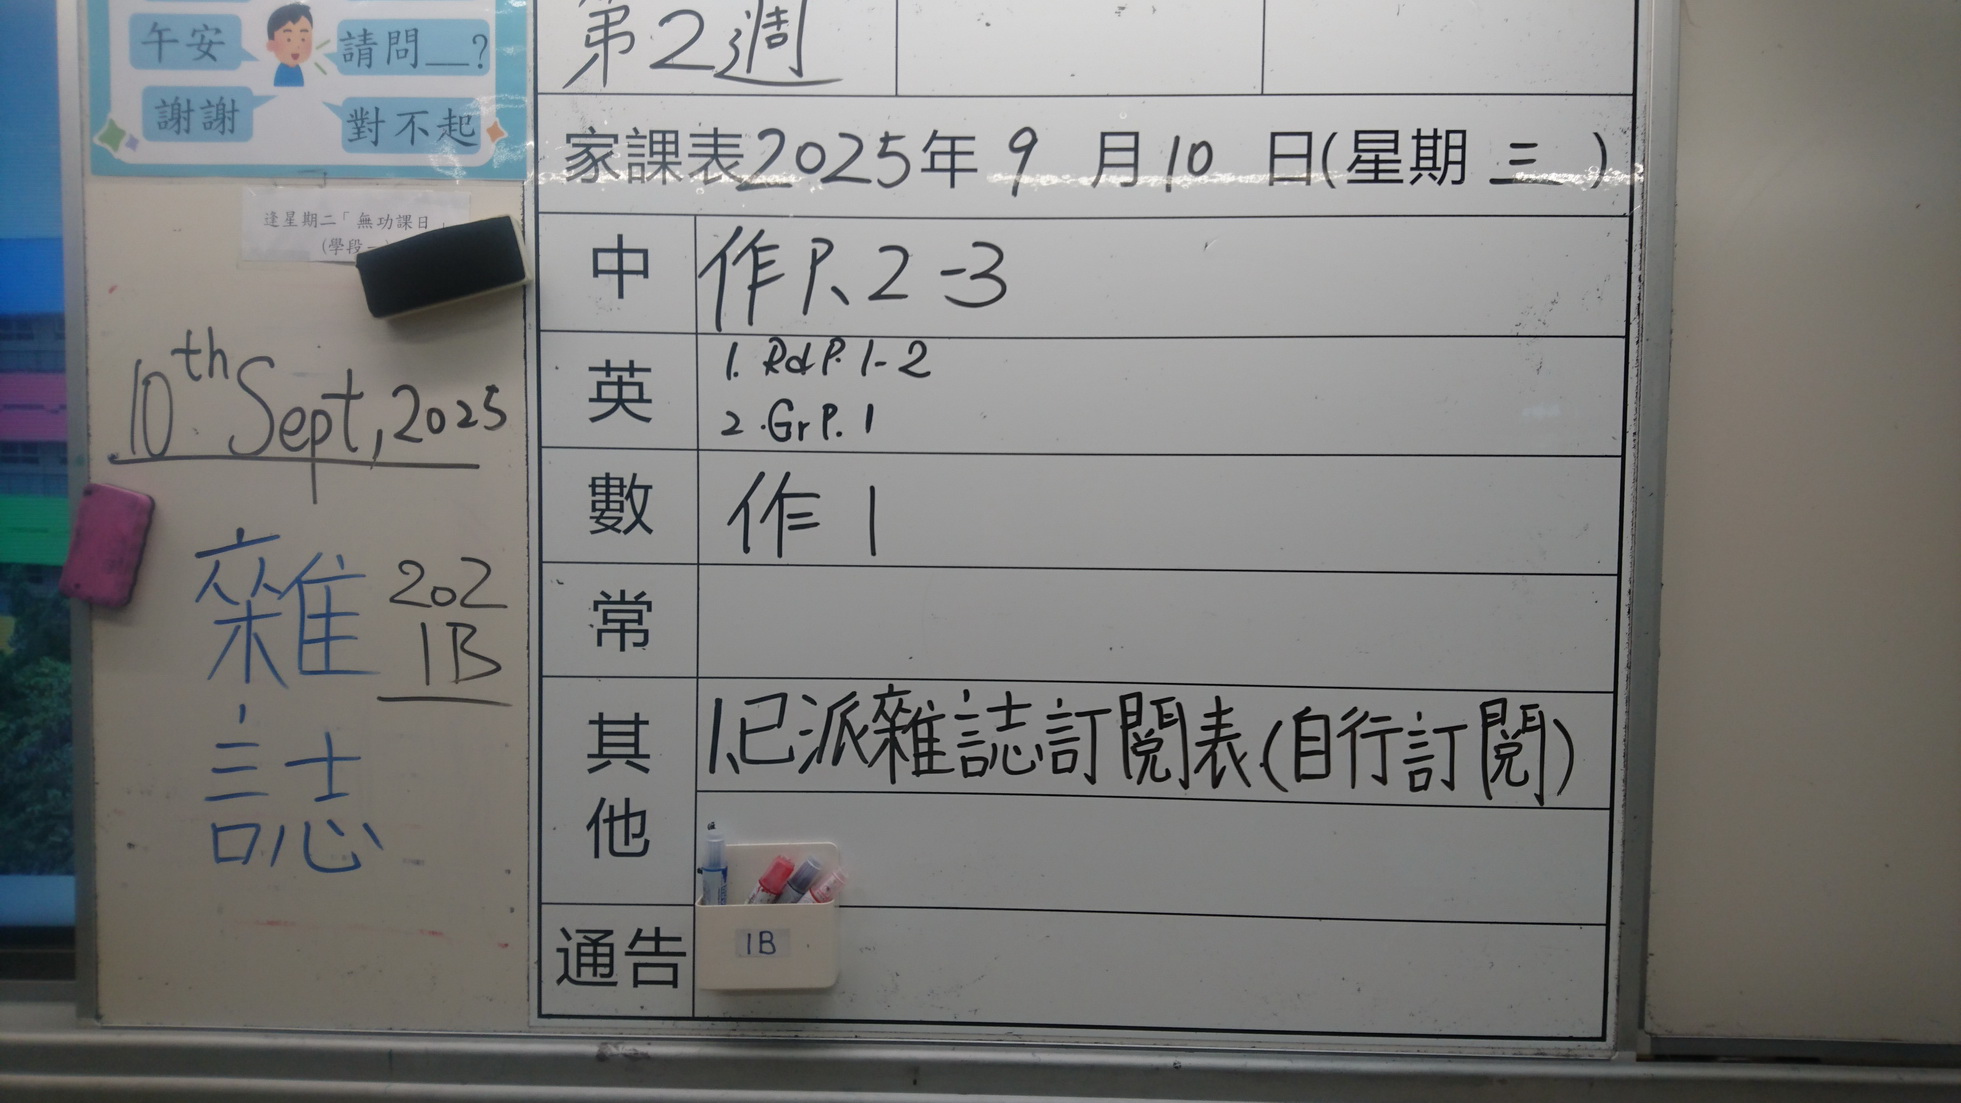 午安
請問__?
謝謝
對不起
逢星期二「無功課日」
(學段一
10th Sept, 2025
雜誌
202
1B
第2週
家課表2025年 9 月 10 日(星期 三 )
中 作 P. 2-3
英 1. Rd P. 1-2
2. Gr P. 1
數 作 1
常
其他 1.已派雜誌訂閱表(自行訂閱)
通告
1B